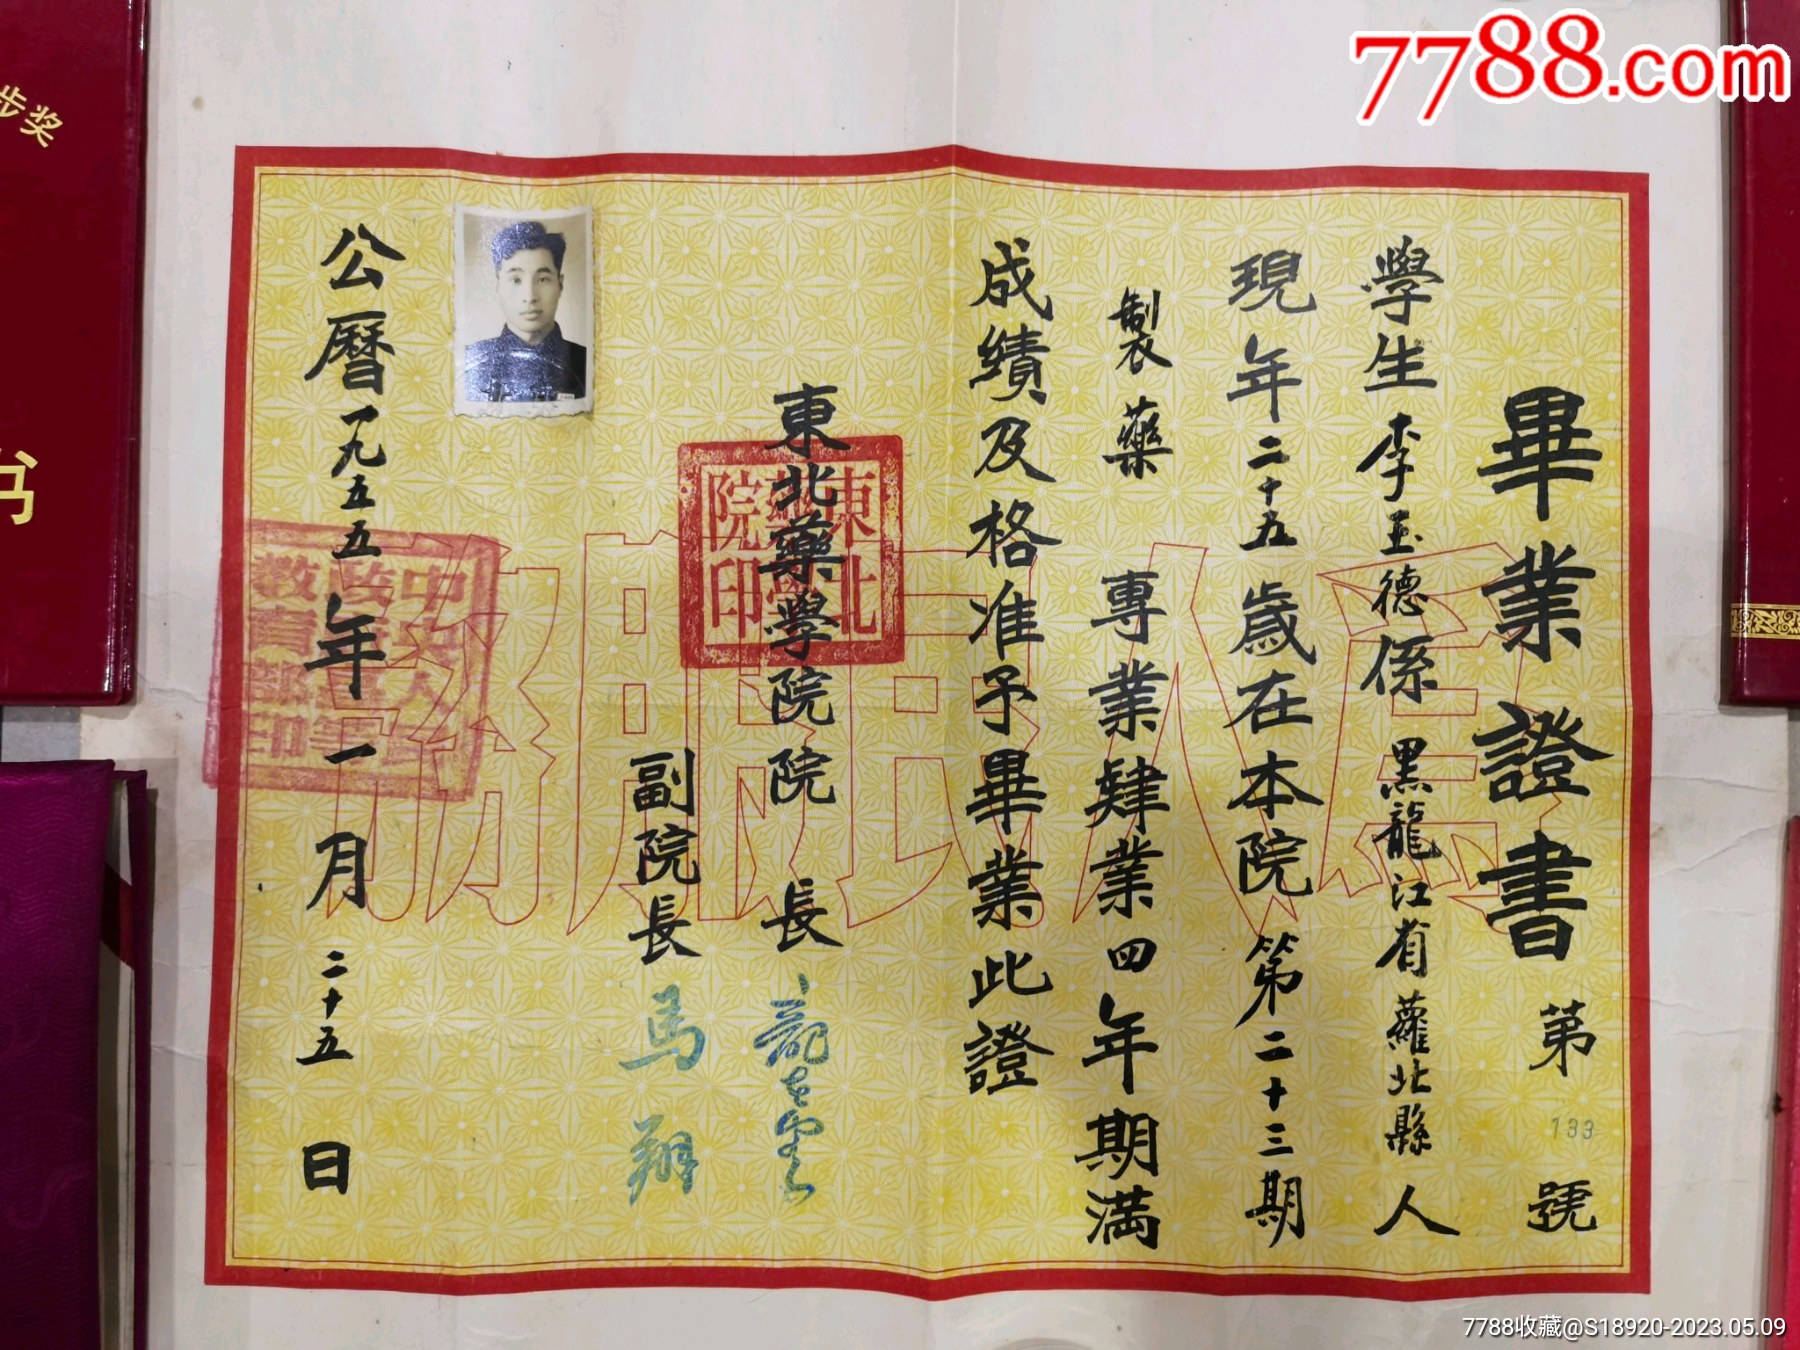 畢業證書 第 133 號
學生李玉德係黑龍江省蘿北縣人
現年二十五歲在本院第二十三期
製藥 專業肄業四年期滿
成績及格准予畢業此證
東北藥學院院長
副院長 馬翔
公曆一九五五年一月二十五日
東北藥學院印
中央人民
教育部印
為人民服務
步奖
书
7788.com
7788收藏@S18920-2023.05.09